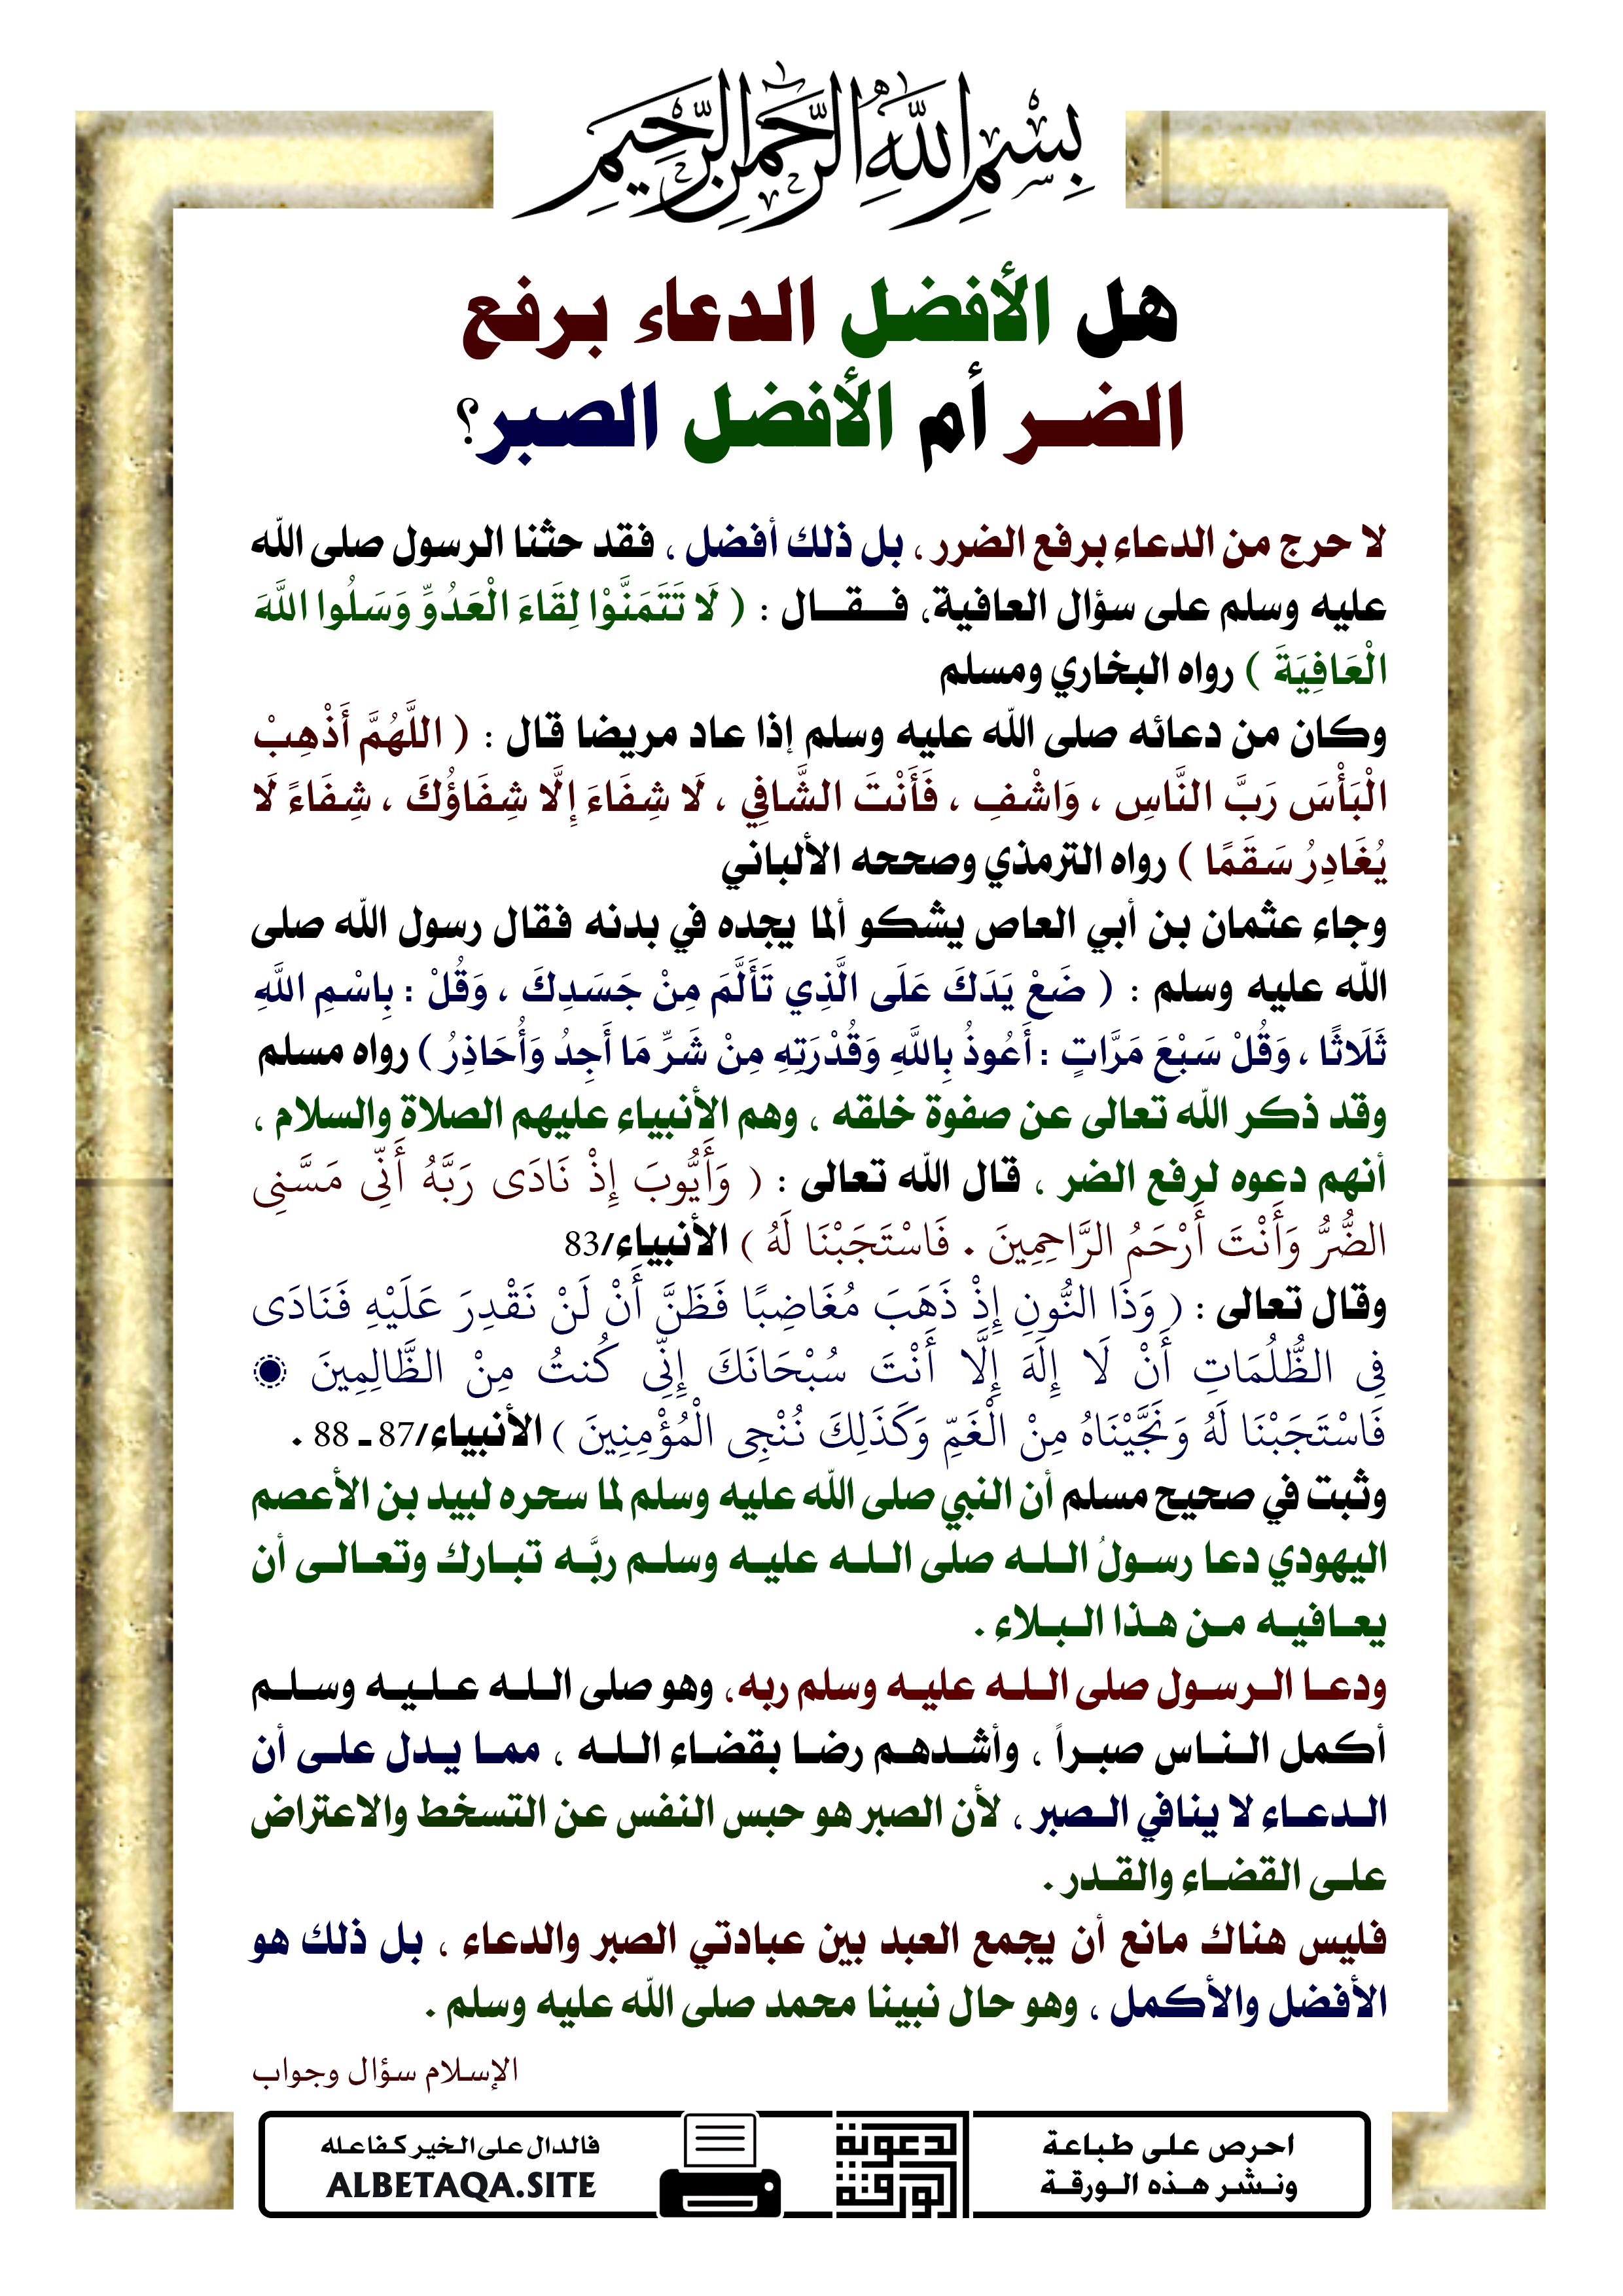 بِسْمِ اللَّهِ الرَّحْمَنِ الرَّحِيمِ
هل الأفضل الدعاء برفع
الضر أم الأفضل الصبر؟
لا حرج من الدعاء برفع الضرر ، بل ذلك أفضل ، فقد حثنا الرسول صلى الله
عليه وسلم على سؤال العافية، فقال : ( لَا تَتَمَنَّوْا لِقَاءَ الْعَدُوِّ وَسَلُوا اللَّهَ
الْعَافِيَةَ ) رواه البخاري ومسلم
وكان من دعائه صلى الله عليه وسلم إذا عاد مريضا قال : ( اللَّهُمَّ أَذْهِبْ
الْبَأْسَ رَبَّ النَّاسِ ، وَاشْفِ ، فَأَنْتَ الشَّافِي ، لَا شِفَاءَ إِلَّا شِفَاؤُكَ ، شِفَاءً لَا
يُغَادِرُ سَقَمًا ) رواه الترمذي وصححه الألباني
وجاء عثمان بن أبي العاص يشكو ألما يجده في بدنه فقال رسول الله صلى
الله عليه وسلم : ( ضَعْ يَدَكَ عَلَى الَّذِي تَأَلَّمَ مِنْ جَسَدِكَ ، وَقُلْ : بِاسْمِ اللَّهِ
ثَلَاثًا ، وَقُلْ سَبْعَ مَرَّاتٍ : أَعُوذُ بِاللَّهِ وَقُدْرَتِهِ مِنْ شَرِّ مَا أَجِدُ وَأُحَاذِرُ ) رواه مسلم
وقد ذكر الله تعالى عن صفوة خلقه ، وهم الأنبياء عليهم الصلاة والسلام ،
أنهم دعوه لرفع الضر ، قال الله تعالى : ( وَأَيُّوبَ إِذْ نَادَى رَبَّهُ أَنِّي مَسَّنِي
الضُّرُّ وَأَنْتَ أَرْحَمُ الرَّاحِمِينَ . فَاسْتَجَبْنَا لَهُ ) الأنبياء/83
وقال تعالى : ( وَذَا النُّونِ إِذْ ذَهَبَ مُغَاضِبًا فَظَنَّ أَنْ لَنْ نَقْدِرَ عَلَيْهِ فَنَادَى
فِي الظُّلُمَاتِ أَنْ لَا إِلَهَ إِلَّا أَنْتَ سُبْحَانَكَ إِنِّي كُنتُ مِنْ الظَّالِمِينَ ۞
فَاسْتَجَبْنَا لَهُ وَنَجَّيْنَاهُ مِنْ الْغَمِّ وَكَذَلِكَ نُنْجِي الْمُؤْمِنِينَ ) الأنبياء/87 ـ 88 .
وثبت في صحيح مسلم أن النبي صلى الله عليه وسلم لما سحره لبيد بن الأعصم
اليهودي دعا رسولُ الله صلى الله عليه وسلم ربَّه تبارك وتعالى أن
يعافيه من هذا البلاء .
ودعا الرسول صلى الله عليه وسلم ربه، وهو صلى الله عليه وسلم
أكمل الناس صبراً ، وأشدهم رضا بقضاء الله ، مما يدل على أن
الدعاء لا ينافي الصبر ، لأن الصبر هو حبس النفس عن التسخط والاعتراض
على القضاء والقدر .
فليس هناك مانع أن يجمع العبد بين عبادتي الصبر والدعاء ، بل ذلك هو
الأفضل والأكمل ، وهو حال نبينا محمد صلى الله عليه وسلم .
الإسلام سؤال وجواب
احرص على طباعة
ونشر هذه الورقة
الورقة
الدعوية
فالدال على الخير كفاعله
ALBETAQA.SITE